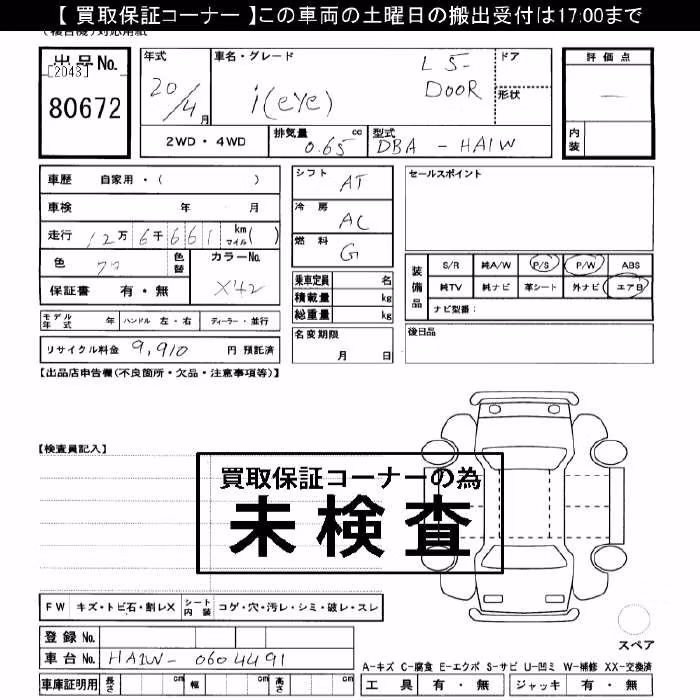 【 買取保証コーナー 】この車両の土曜日の搬出受付は17:00まで
出品No.
[2043]
80672
年式
20/4月
車名・グレード
i(eye)
L 5-DOOR
ドア
形状
評価点
—
内装
2WD・4WD
排気量
0.65 cc
型式
DBA - HA1W
車歴 自家用・( )
車検 年 月
走行 12万6千661 km マイル( )
色
色替
カラーNo.
X42
保証書 有・無
シフト AT
冷房 AC
燃料 G
乗車定員 名
積載量 kg
総重量 kg
セールスポイント
装備品
S/R 純A/W P/S P/W ABS
純TV 純ナビ 革シート 外ナビ エアB
ナビ型番:
モデル年式 年 ハンドル 左・右 ディーラー・並行
名変期限
月 日
後日品
リサイクル料金 9,910 円 預託済
【出品店申告欄(不良箇所・欠品・注意事項等)】
【検査員記入】
買取保証コーナーの為
未検査
FW キズ・トビ石・割レX シート内装 コゲ・穴・汚レ・シミ・破レ・スレ
登録No.
車台No. HA1W- 0604491
車庫証明用 長さ cm 幅 cm 高さ cm
スペア
A-キズ C-腐食 E-エクボ S-サビ U-凹ミ W-補修 XX-交換済
工具 有・無 ジャッキ 有・無